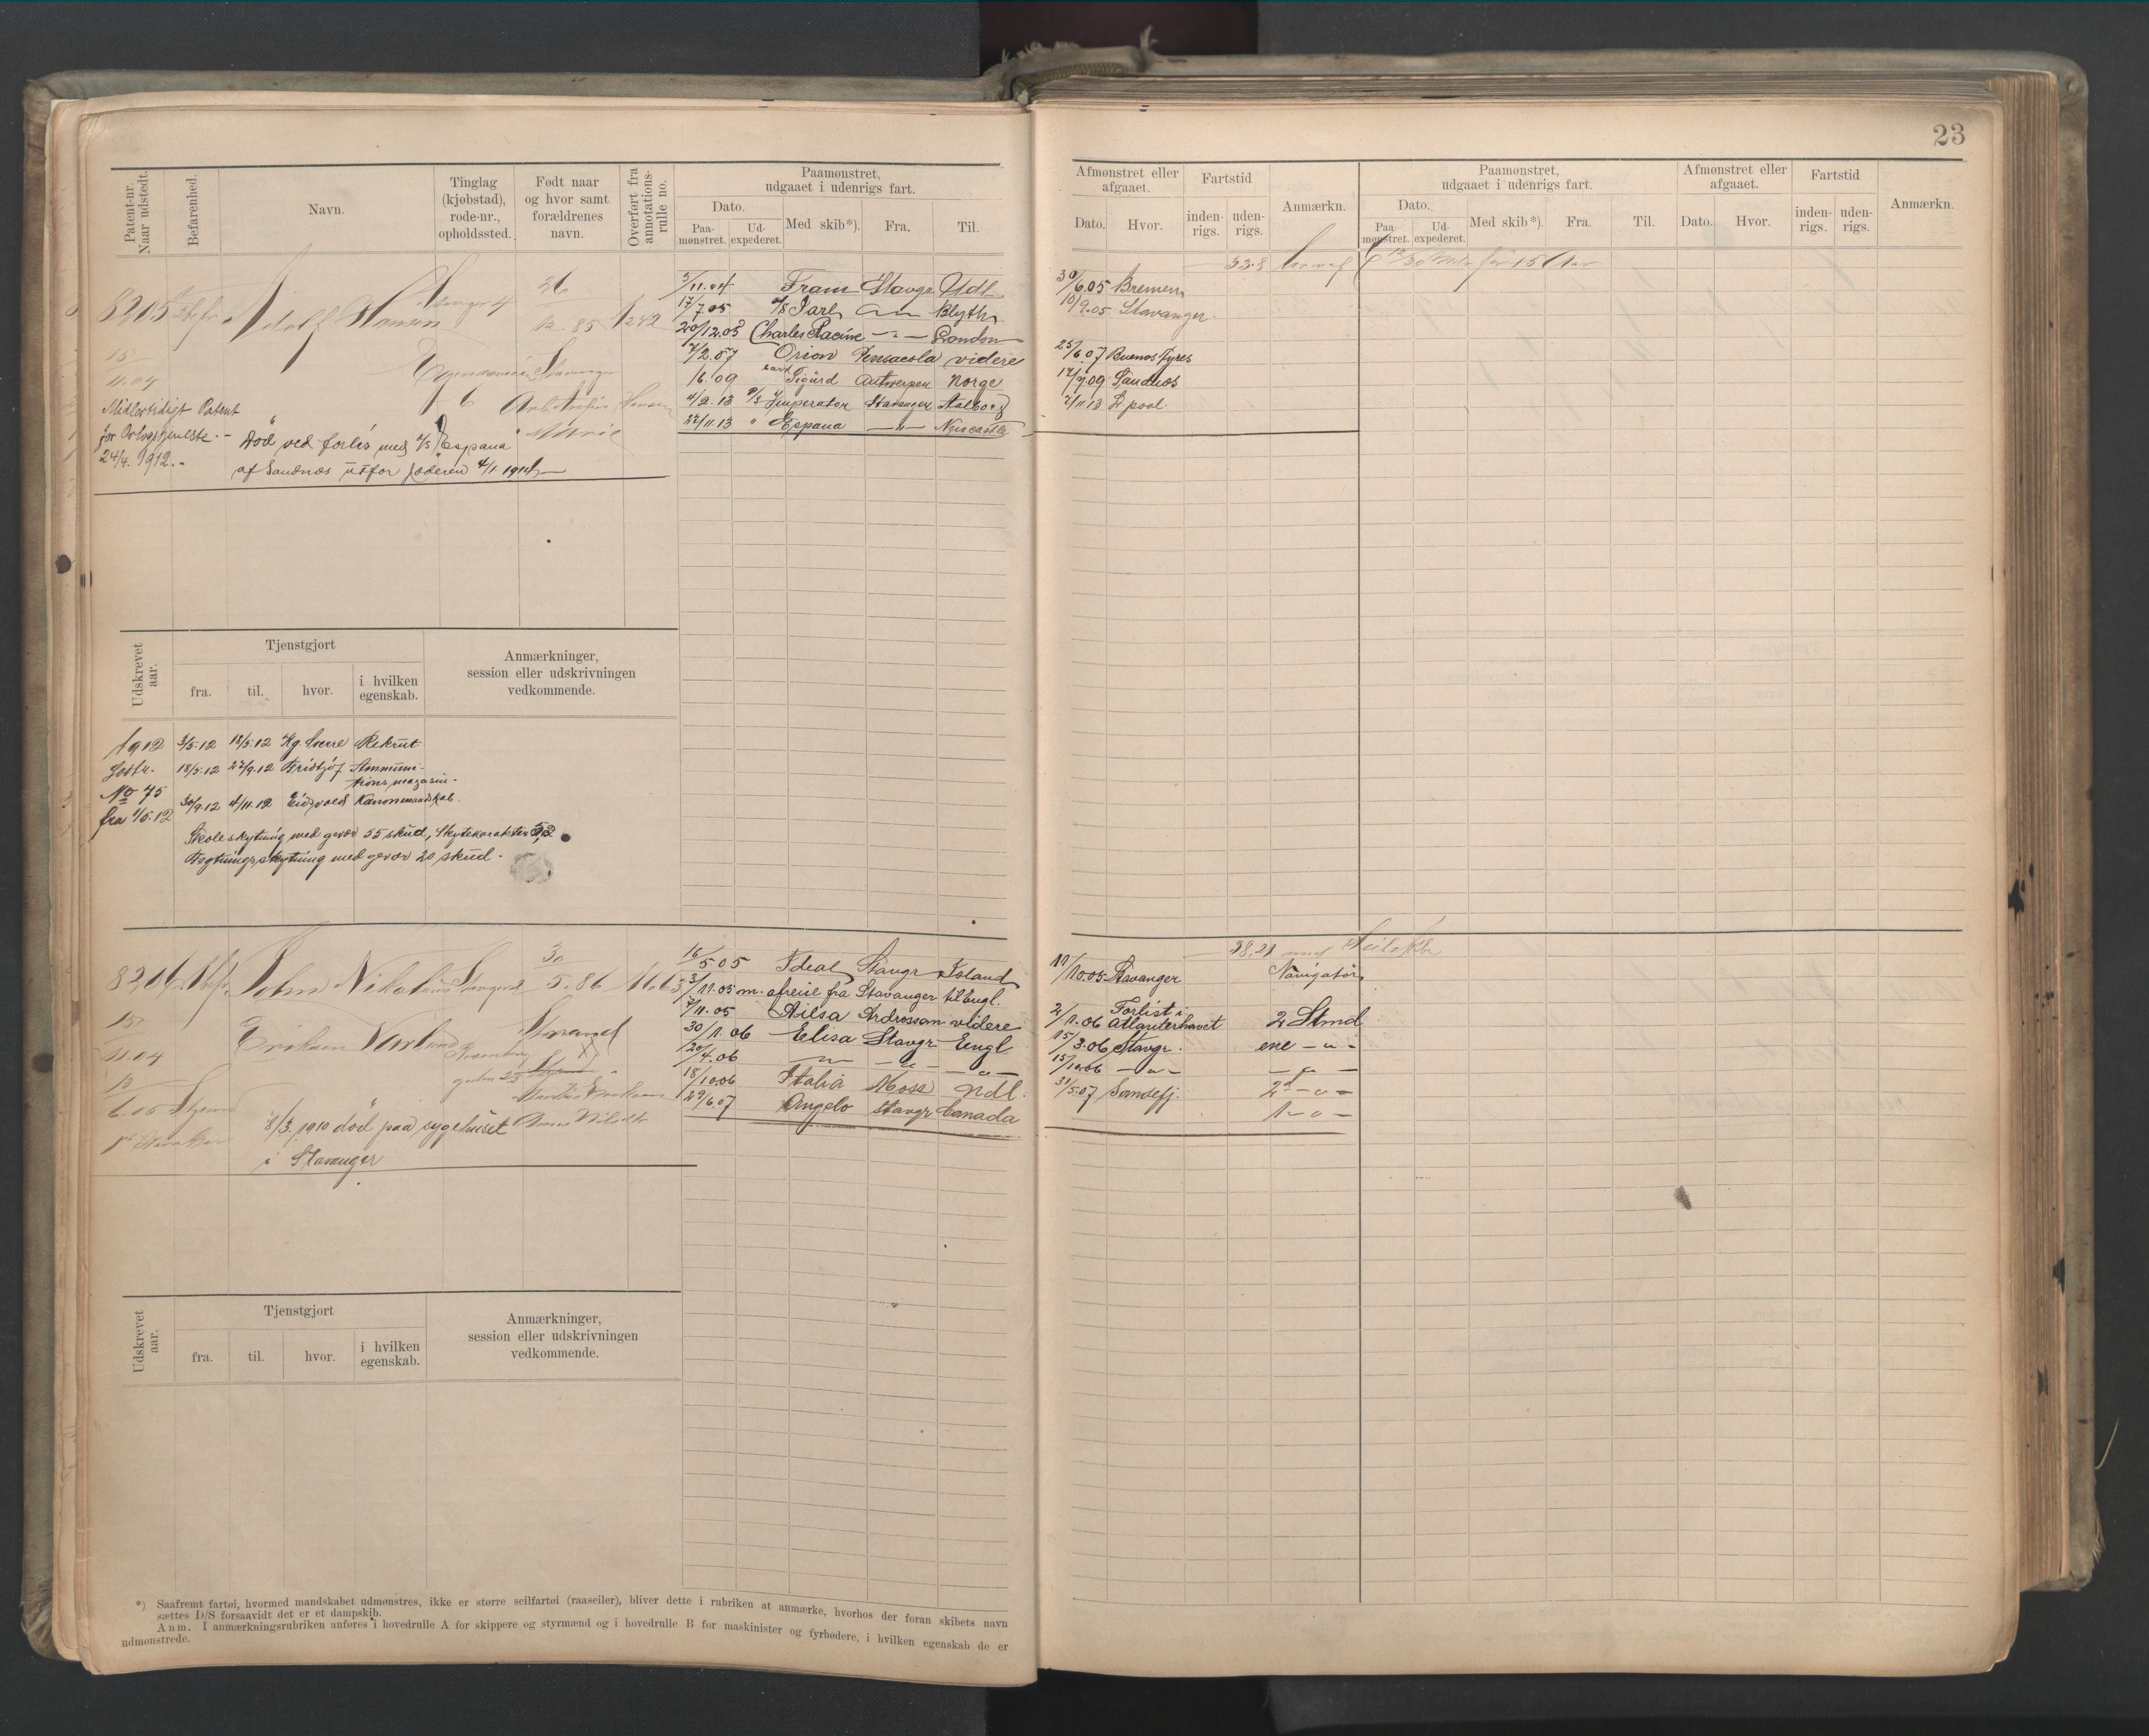 23
Patent-nr. Naar udstedt.
Befarenhed.
Navn.
Tinglag (kjøbstad), rode-nr., opholdssted.
Født naar og hvor samt forældrenes navn.
Overført fra annotations-rulle no.
Paamønstret, udgaaet i udenrigs fart.
Dato.
Paa-mønstret.
Ud-expederet.
Med skib*).
Fra.
Til.
Afmønstret eller afgaaet.
Dato.
Hvor.
Fartstid
inden-rigs.
uden-rigs.
Anmærkn.
Paamønstret, udgaaet i udenrigs fart.
Dato.
Paa-mønstret.
Ud-expederet.
Med skib*).
Fra.
Til.
Afmønstret eller afgaaet.
Dato.
Hvor.
Fartstid
inden-rigs.
uden-rigs.
Anmærkn.
8205
Adolf Hansen
Stavanger
12. 85
1242
Stavanger
Midlertidigt Patent
for Orlogstjeneste.-
24/4. 1912.-
Død ved forlis med D/S "Espana"
af Sandnæs utfor Jæderen 4/1 1914
3/11.04 Fram Stavgr Udl
17/7.05 D/S Jarl Blyth
20/12.05 Charles Racine - " - London
4/2.07 Orion Pensacola videre
16. 09 bark Sigurd Antwerpen Norge
4/2. 13 D/S Imperator Stavanger Aalborg
22/11.13 " Espana - " - Newcastle
30/6.05 Bremen
10/9.05 Stavanger.
25/6.07 Buenos Ayres
17/9.09 Sandnæs
7/11.13 L.pool.
Udskrevet aar.
Tjenstgjort
fra.
til.
hvor.
i hvilken egenskab.
Anmærkninger, session eller udskrivningen vedkommende.
1912 3/5.12 18/5.12 Kg Sverre Rekrut
18/5.12 27/9.12 Fridtjof Ammuni-
tionsmagasin.
No 75
30/9.12 4/11.12 Eidsvold Kanonmandskab.
fra 1/5.12
Skoleskytning med gevær 55 skud, Skytekarakter 5,2
Fegtningsskytning med gevær 20 skud.
8206
John Nikolai Stavanger
30/5. 86
Eriksen
Strand
15/11.04
8/3. 1910 død paa sygehuset
i Stavanger
16/5 05 Ideal Stavgr Island
3/11.05 m. afreise fra Stavanger til Engl.
7/11.05 Ailsa Ardrossan videre
30/1.06 Elisa Stavgr Engl
20/4.06 - " - - " - - " -
18/10.06 Italia Moss Udl.
29/6.07 Angelo Stavgr Canada
38.21 med Seilskibe
10/10.05 Stavanger Navigatør
2/1.06 Forlist i Atlanterhavet 2 Stmd
15/3.06 Stavgr. ene - " -
15/10.06 - " - - " -
31/5.07 Sandefj. 2d - " -
1 - " -
Udskrevet aar.
Tjenstgjort
fra.
til.
hvor.
i hvilken egenskab.
Anmærkninger, session eller udskrivningen vedkommende.
*) Saafremt fartøi, hvormed mandskabet udmønstres, ikke er større seilfartøi (raaseiler), bliver dette i rubriken at anmærke, hvorhos der foran skibets navn
sættes D/S forsaavidt det er et dampskib.
Anm. I anmærkningsrubriken anføres i hovedrulle A for skippere og styrmænd og i hovedrulle B for maskinister og fyrbødere, i hvilken egenskab de er
udmønstrede.